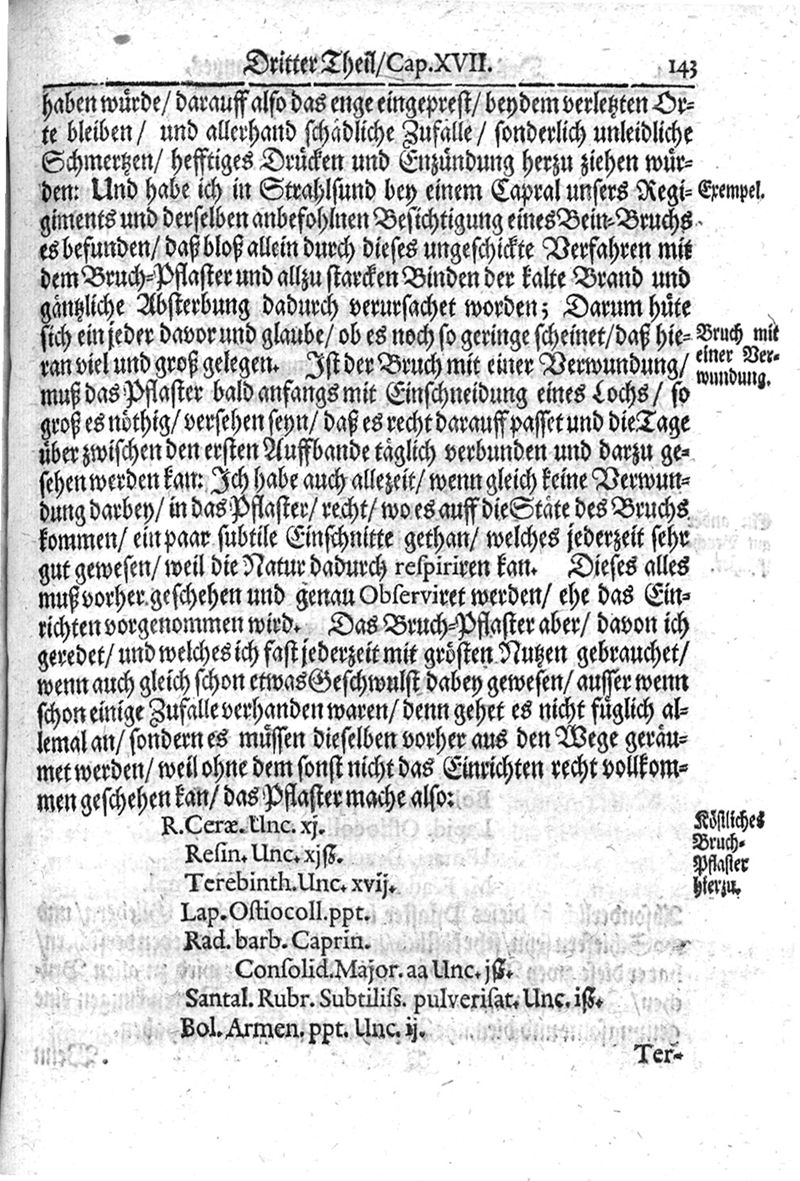 Dritter Theil/Cap.XVII. 143
haben würde/ darauff also das enge eingeprest/ bey dem verletzten Or-
te bleiben/ und allerhand schädliche Zufälle/ sonderlich unleidliche
Schmertzen/ hefftiges Drücken und Enzündung herzu ziehen wür-
den: Und habe ich in Strahlsund bey einem Capral unsers Regi-
Exempel.
giments und derselben anbefohlnen Besichtigung eines Bein-Bruchs
es befunden/ daß bloß allein durch dieses ungeschickte Verfahren mit
dem Bruch-Pflaster und allzu starcken Binden der kalte Brand und
gäntzliche Absterbung dadurch verursachet worden; Darum hüte
sich ein jeder davor und glaube/ ob es noch so geringe scheinet/ daß hie-
ran viel und groß gelegen. Ist der Bruch mit einer Verwundung/
Bruch mit
einer Ver-
wundung.
muß das Pflaster bald anfangs mit Einschneidung eines Lochs/ so
groß es nöthig/ versehen seyn/ daß es recht darauff passet und die Tage
über zwischen den ersten Auffbande täglich verbunden und darzu ge-
sehen werden kan: Ich habe auch allezeit/ wenn gleich keine Verwun-
dung darbey/ in das Pflaster/ recht/ wo es auff die Stäte des Bruchs
kommen/ ein paar subtile Einschnitte gethan/ welches jederzeit sehr
gut gewesen/ weil die Natur dadurch respiriren kan. Dieses alles
muß vorher geschehen und genau Observiret werden/ ehe das Ein-
richten vorgenommen wird. Das Bruch-Pflaster aber/ davon ich
geredet/ und welches ich fast jederzeit mit grösten Nutzen gebrauchet/
wenn auch gleich schon etwas Geschwulst dabey gewesen/ ausser wenn
schon einige Zufälle verhanden waren/ denn gehet es nicht füglich al-
lemal an/ sondern es müssen dieselben vorher aus den Wege geräu-
met werden/ weil ohne dem sonst nicht das Einrichten recht vollkom-
men geschehen kan/ das Pflaster mache also:
Köstliches
Bruch-
Pflaster
hierzu.
R. Ceræ. Unc. xj.
Resin. Unc. xjß.
Terebinth. Unc. xvij.
Lap. Ostiocoll. ppt.
Rad. barb. Caprin.
Consolid. Major. aa Unc. jß.
Santal. Rubr. Subtiliß. pulverisat. Unc. iß.
Bol. Armen. ppt. Unc. ij.
Ter-